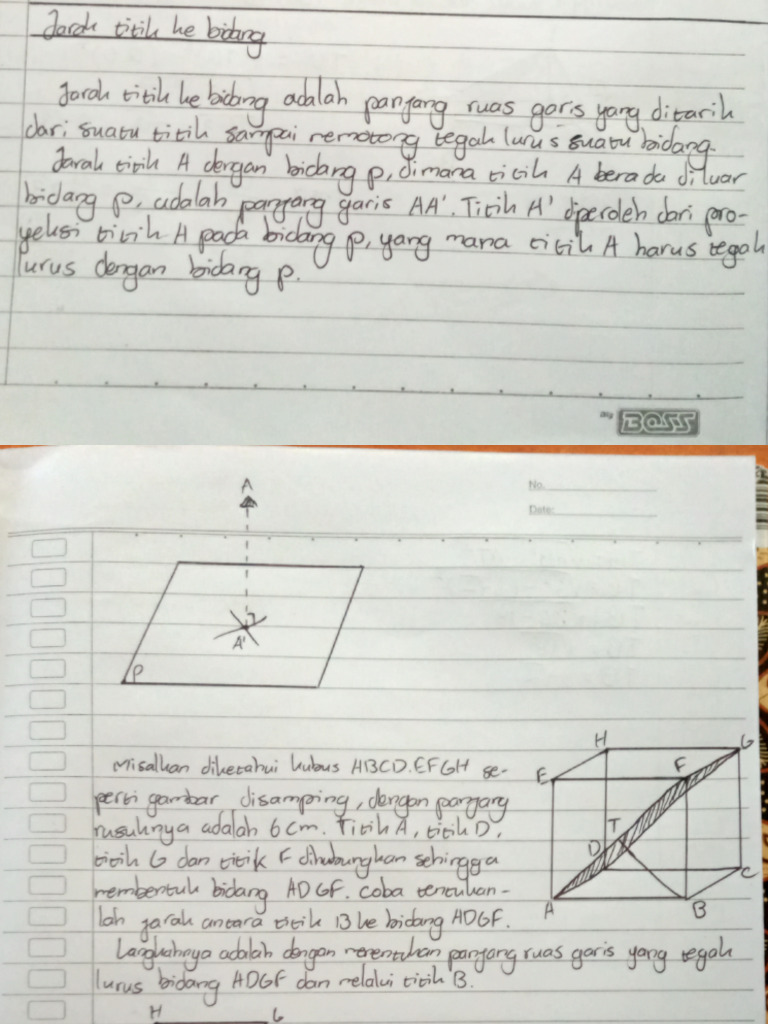 Jarak titik ke bidang
Jarak titik ke bidang adalah panjang ruas garis yang ditarik
dari suatu titik sampai memotong tegak lurus suatu bidang.
Jarak titik A dengan bidang p, dimana titik A berada diluar
bidang p, adalah panjang garis AA'. Titik A' diperoleh dari pro-
yeksi titik A pada bidang p, yang mana titik A harus tegak
lurus dengan bidang p.
My BOSS
A
No.
Date:
A'
P
Misalkan diketahui kubus ABCD.EFGH se-
perti gambar disamping, dengan panjang
rusuknya adalah 6 cm. Titik A, titik D,
titik G dan titik F dihubungkan sehingga
membentuk bidang ADGF. Coba tentukan-
lah jarak antara titik B ke bidang ADGF.
H G
E F
T
D C
A B
Langkahnya adalah dengan menentukan panjang ruas garis yang tegak
lurus bidang ADGF dan melalui titik B.
H G